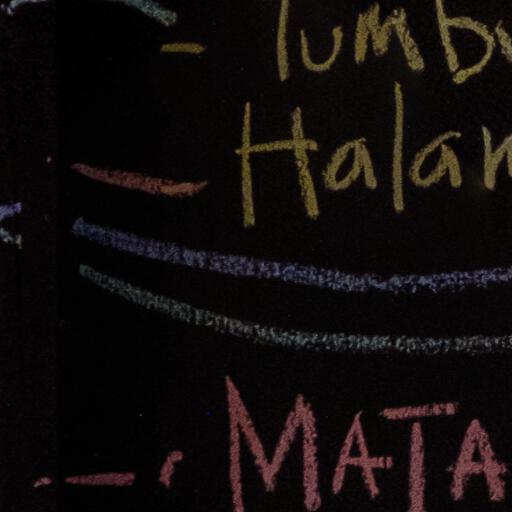 - Tumbu
Halam
MATA